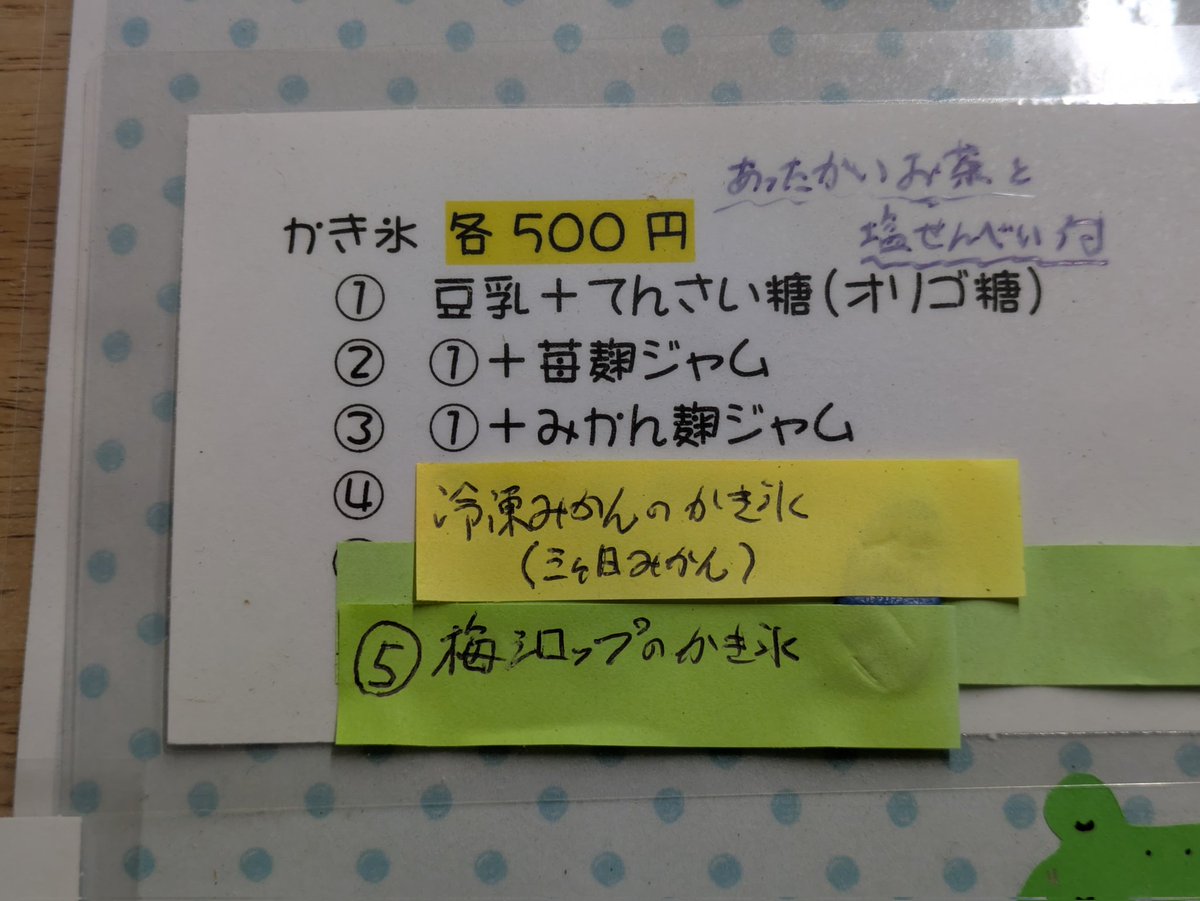 あったかいお茶と
塩せんべい付
かき氷 各500円
① 豆乳+てんさい糖(オリゴ糖)
② ①+苺麹ジャム
③ ①+みかん麹ジャム
④ 冷凍みかんのかき氷
(三ヶ日みかん)
⑤ 梅シロップのかき氷